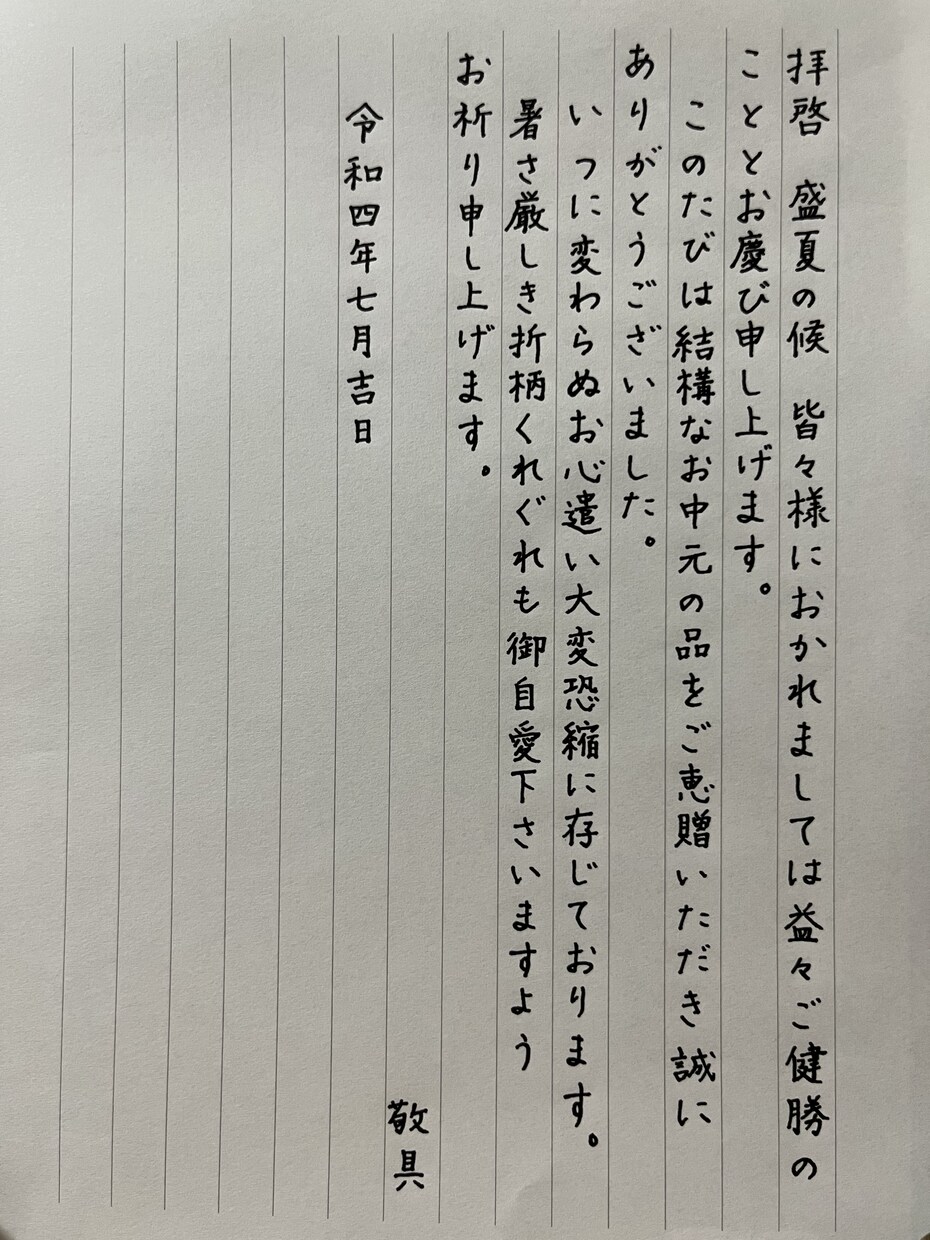 拝啓　盛夏の候　皆々様におかれましては益々ご健勝の
こととお慶び申し上げます。
このたびは結構なお中元の品をご恵贈いただき誠に
ありがとうございました。
いつに変わらぬお心遣い大変恐縮に存じております。
暑さ厳しき折柄くれぐれも御自愛下さいますよう
お祈り申し上げます。
敬具
令和四年七月吉日